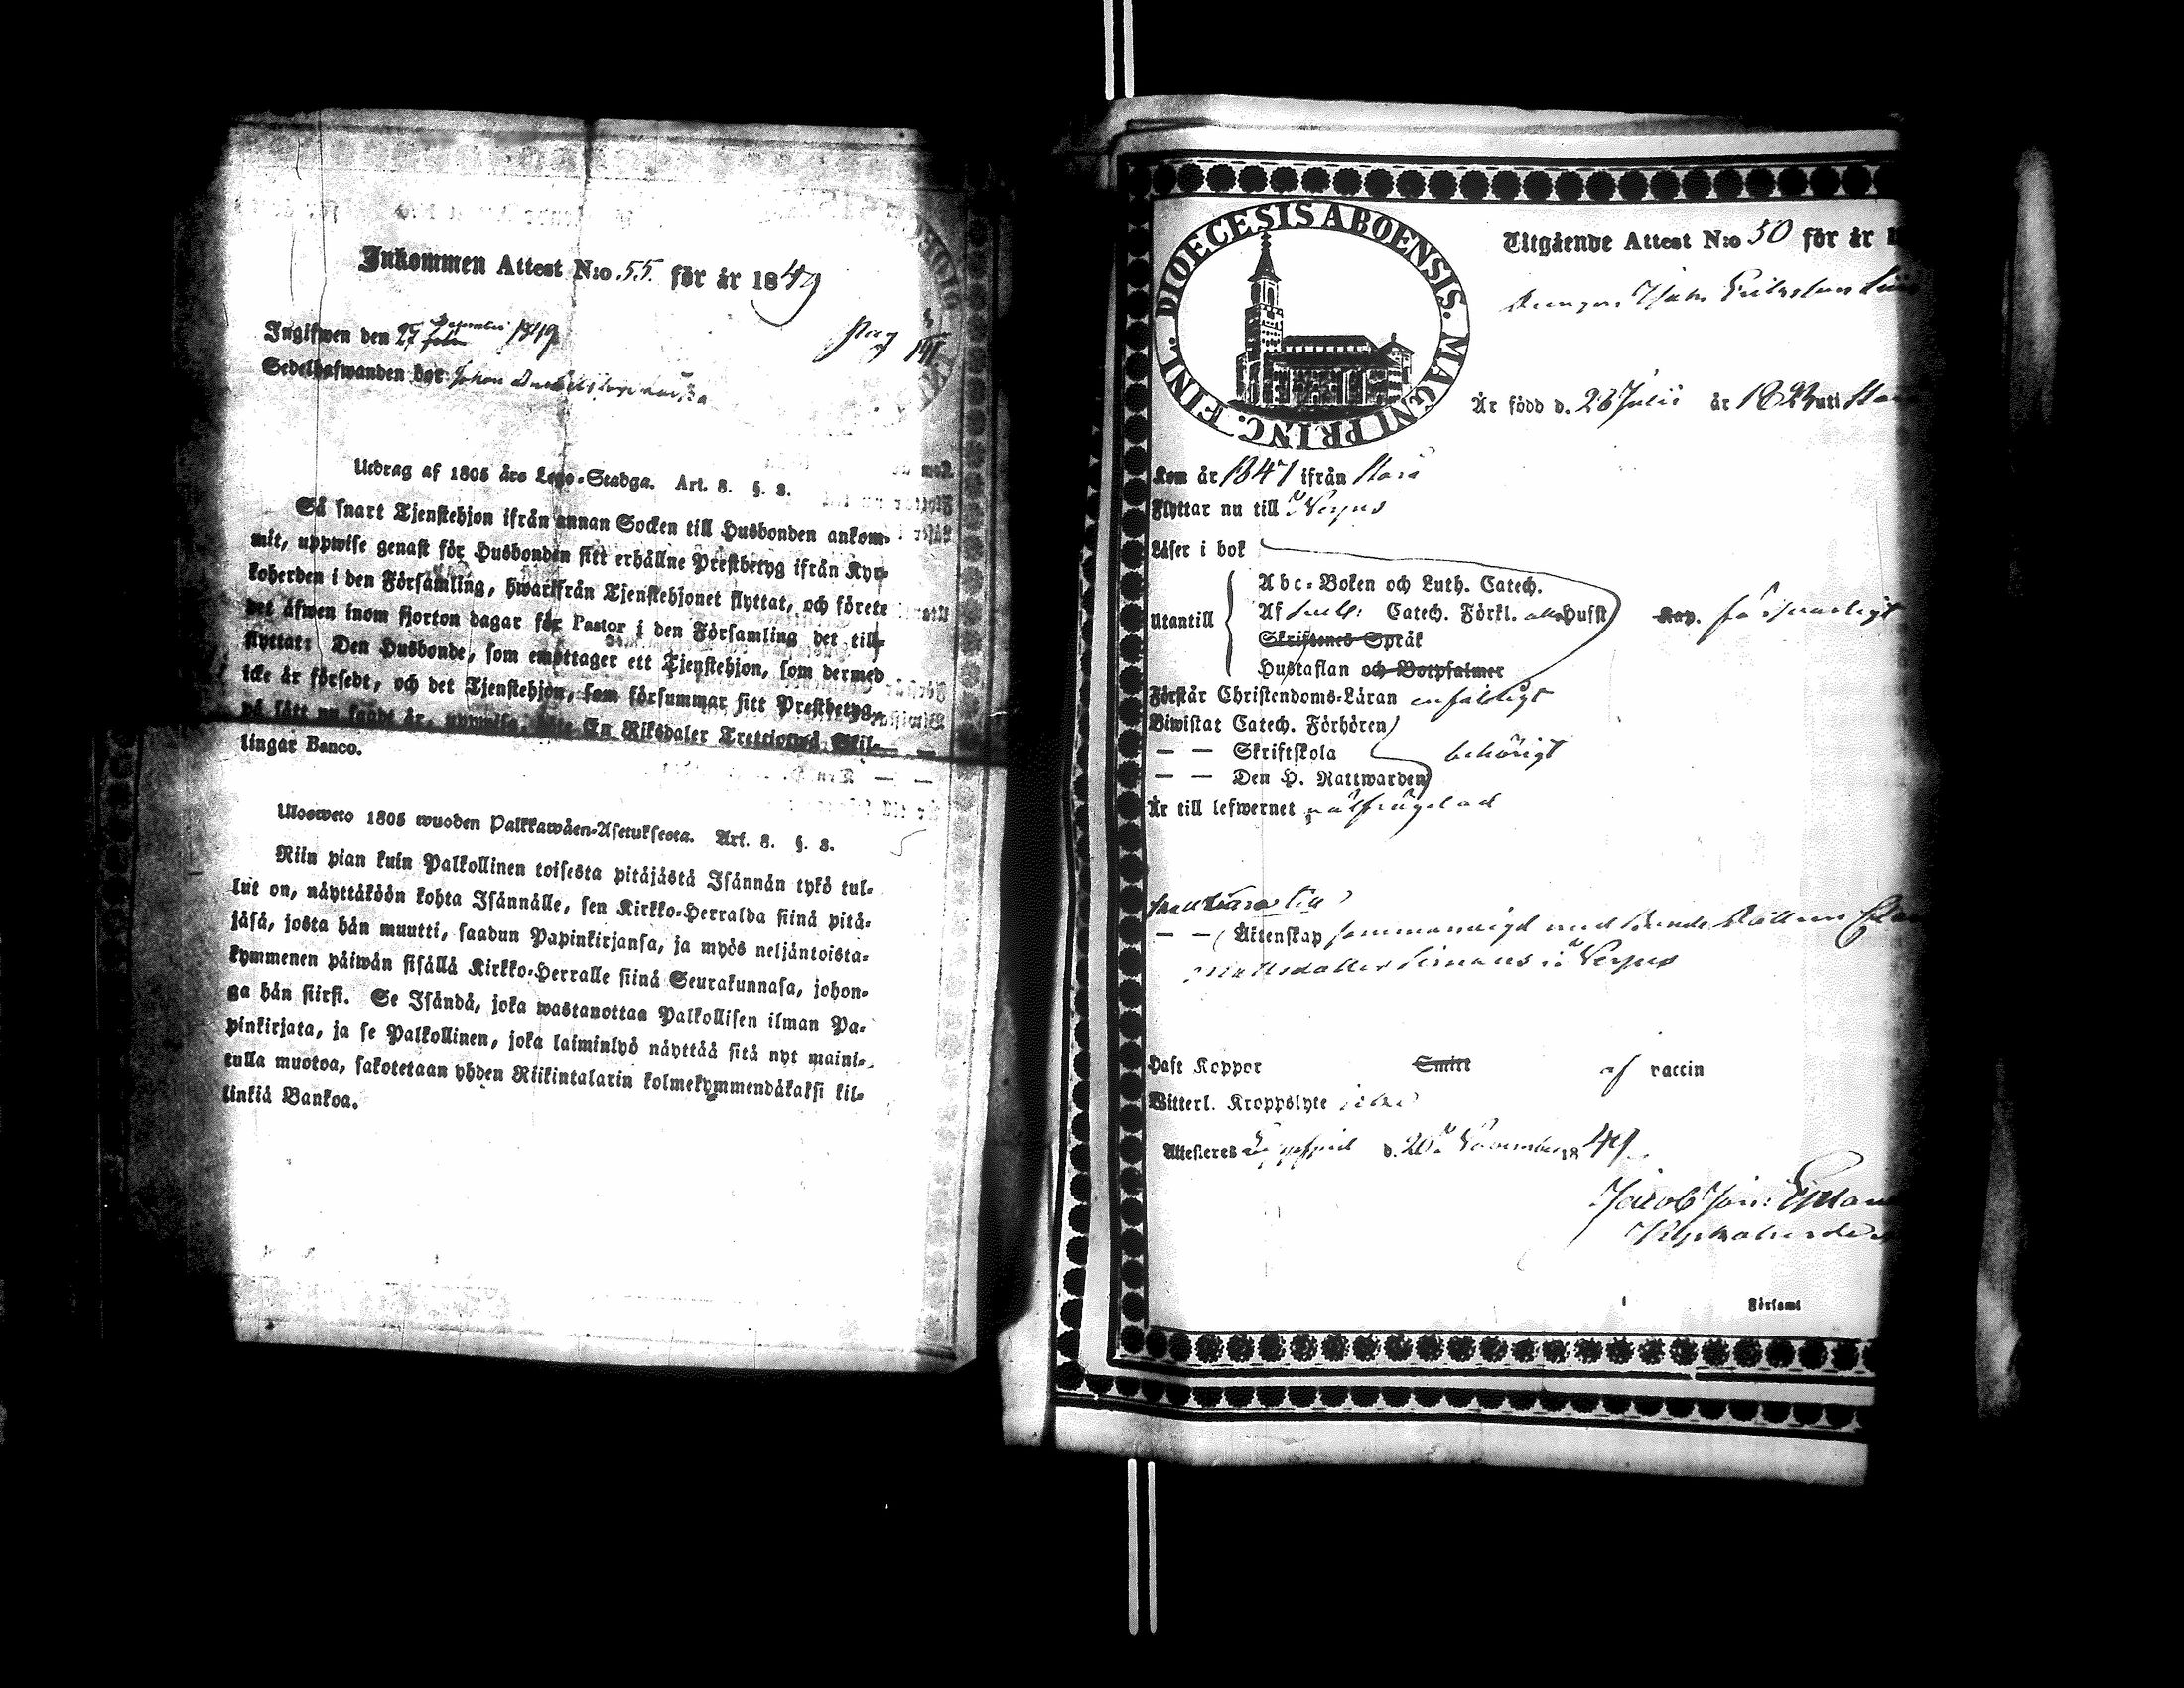 Inkommen Attest N:o 55 för år 1849
Ingifwen den 27 December 1849
Sedelhafwanden bor Johan
pag 141
Utdrag af 1805 års Lego-Stadga. Art. 8. §. 8.
Så snart Tjenstehjon ifrån annan Socken till Husbonden ankom-
mit, uppwise genast för Husbonden sitt erhållne Prestbetyg ifrån Kyr-
koherden i den Församling, hwarifrån Tjenstehjonet flyttat, och förete
det äfwen inom fjorton dagar för Pastor i den Församling det till-
flyttat: Den Husbonde, som emottager ett Tjenstehjon, som dermed
icke är försedt, och det Tjenstehjon, som försummar sitt Prestbetyg,
på sätt nu sagdt är, uppwisa, böte En Riksdaler Trettiotwå Skil-
lingar Banco.
Ulosweto 1805 wuoden Palkkawäen-Asetuksesta. Art. 8. §. 8.
Niin pian kuin Palkollinen toisesta pitäjästä Isännän tykö tul-
lut on, näyttäköön kohta Isännälle, sen Kirkko-Herralda siinä pitä-
jäsä, josta hän muutti, saadun Papinkirjansa, ja myös neljäntoista-
kymmenen päiwän sisällä Kirkko-Herralle siinä Seurakunnasa, johon-
ga hän siirsi. Se Isändä, joka wastanottaa Palkollisen ilman Pa-
pinkirjata, ja se Palkollinen, joka laiminlyö näyttää sitä nyt maini-
tulla muotoa, sakotetaan yhden Riikintalarin kolmekymmendäkaksi kil-
linkiä Bankoa.
DIOECESIS ABOENSIS. MAGNI PRINC. FINL.
Utgående Attest N:o 50 för år 1
Drengen Johan Eriksson
Är född d. 28 Julii år 1823 uti
Kom år 1847 ifrån
Flyttar nu till
Läser i bok
Utantill
Abc-Boken och Luth. Catech.
Af Catech. Förkl. Hussl
Kap. försvarligt
Skriftenes Språk
Hustaflan och Botpsalmer
Förstår Christendoms-Läran enfaldigt
Biwistat Catech. Förhören
— — Skriftskola behörigt
— — Den H. Nattwarden
Är till lefwernet välfrägdad
— — Äktenskap med
i
Haft Koppor Smitt af vaccin
Witterl. Kroppslyte icke
Attesteras d. 20 November 1849
Jacob Joh:
Kyrkoherde
Församl